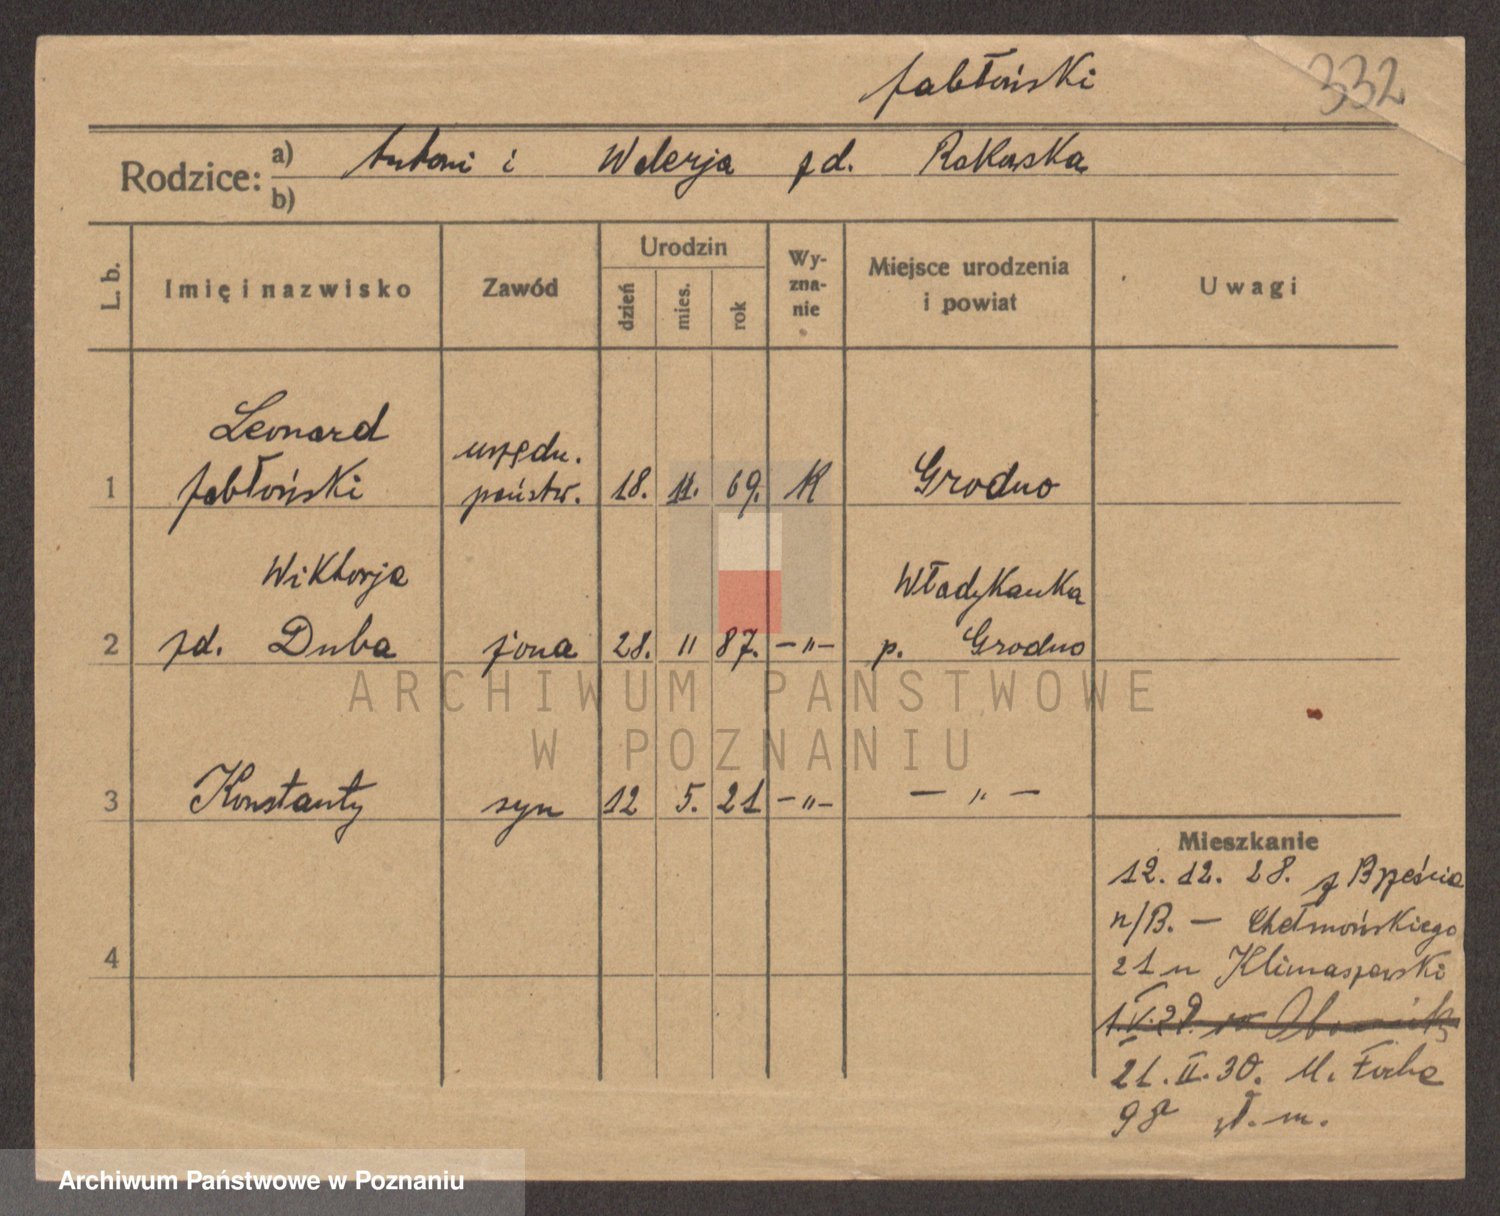 Jabłoński
332
Rodzice:
a) Antoni i Walerja zd. Rakowska
b)
L. b.
Imię i nazwisko
Zawód
Urodzin
dzień
mies.
rok
Wy-
zna-
nie
Miejsce urodzenia
i powiat
Uwagi
Leonard
urzędn.
1 Jabłoński państw. 18. 11. 69. K Grodno
Wiktorja
Władykanka
2 zd. Duba żona 28. 11 87. —"— p. Grodno
3 Konstanty syn 12 5. 21 —"— — " —
4
Mieszkanie
12. 12. 28. z Brześcia
n/B. — Chełmońskiego
21 u Klimaszewski
1.V.29.
21. II. 30. M. Focha
98 m.
ARCHIWUM PAŃSTWOWE
W POZNANIU
Archiwum Państwowe w Poznaniu